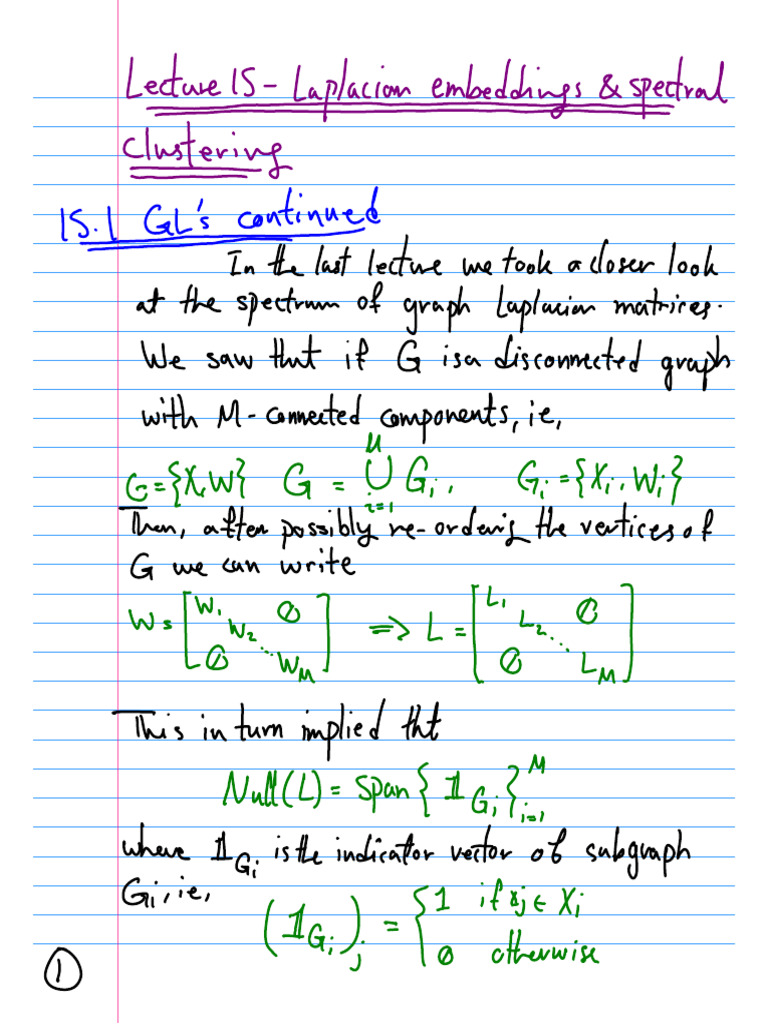 Lecture 15 - Laplacian embeddings & spectral
Clustering
15.1 GL's continued
In the last lecture we took a closer look
at the spectrum of graph Laplacian matrices.
We saw that if G is a disconnected graph
with M-connected components, ie,
G={X,W} G = ⋃_{i=1}^{M} G_i, G_i={X_i, W_i}
Then, after possibly re-ordering the vertices of
G we can write
W = [W_1 W_2 ⋱ W_M, 0, 0] => L = [L_1 L_2 ⋱ L_M, 0, 0]
This in turn implied tht
Null(L) = Span{𝟙_{G_i}}_{i=1}^{M}
where 𝟙_{G_i} is the indicator vector of subgraph
G_i, ie,
(𝟙_{G_i})_j = { 1 if x_j ∈ X_i
0 otherwise
1